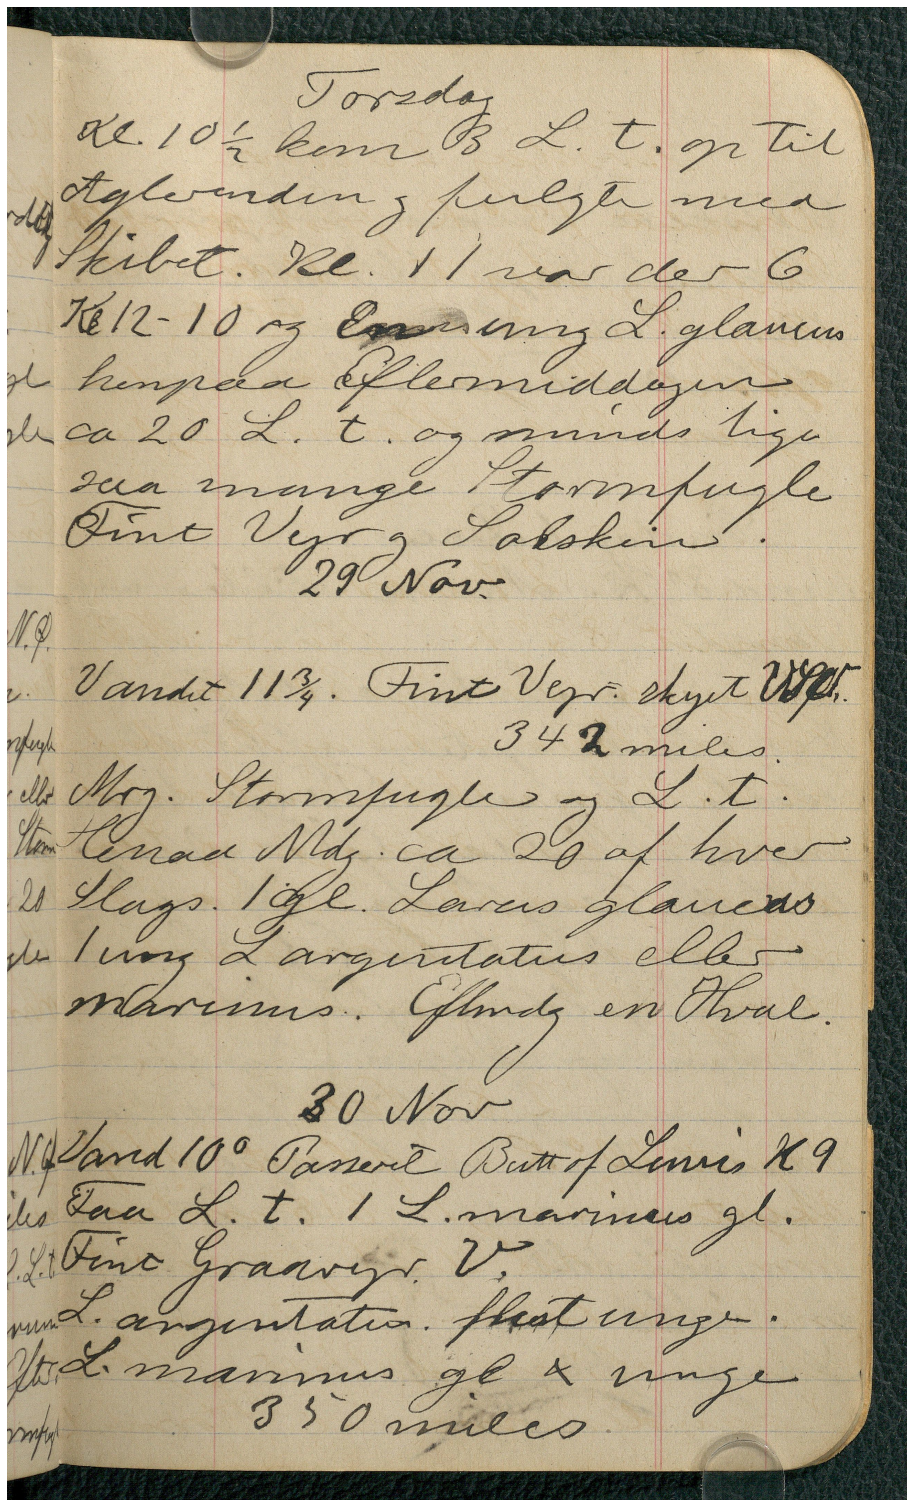 Torsdag
Kl. 10½ kom 3 L. t. op til
Agterenden og fulgte med
Skibet. Kl. 11 var der 6
Kl 12 - 10 og En ung L. glaucus
henpaa Eftermiddagen
ca 20 L. t. og minds lige
saa mange Stormfugle
Fint Vejr og Solskin.
29 Nov.
Vandet 11¾. Fint Vejr. skyet
342 miles.
Mrg. Stormfugle og L. t.
Henad Mdg. ca 20 af hver
Slags. 1 gl. Larus glaucus
1 ung L argentatus eller
marinus. Eftmdg en Hval.
30 Nov
Vand 10° Passeret Butt of Lewis Kl 9
Faa L. t. 1 L. marinus gl.
Fint Graavejr. V.
L. argentatus. flest unge.
L. marinus gl x unge
350 miles